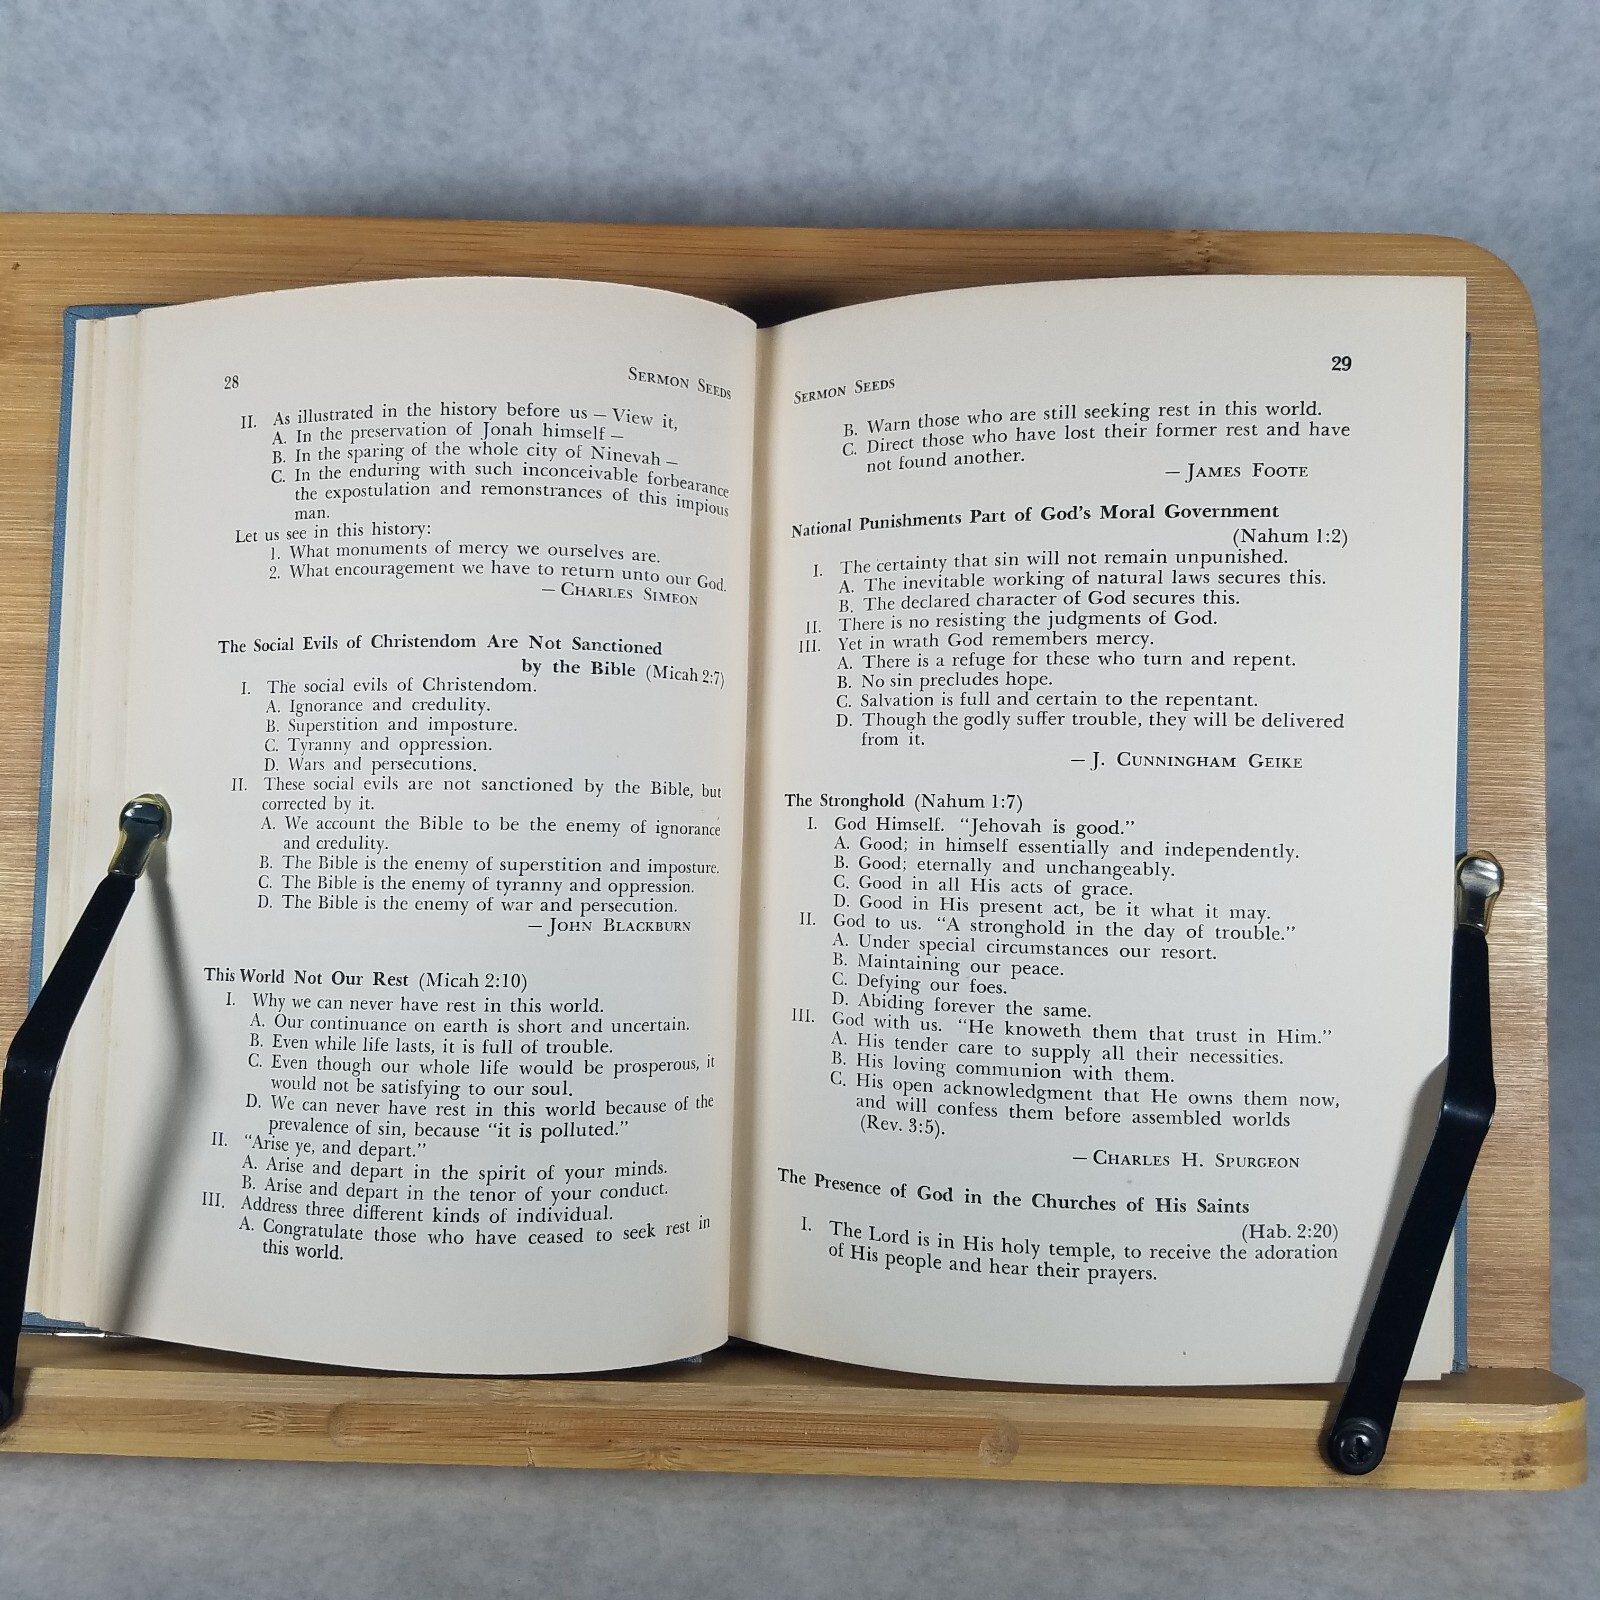 28
SERMON SEEDS
II. As illustrated in the history before us — View it,
A. In the preservation of Jonah himself —
B. In the sparing of the whole city of Ninevah —
C. In the enduring with such inconceivable forbearance
the expostulation and remonstrances of this impious
man.
Let us see in this history:
1. What monuments of mercy we ourselves are.
2. What encouragement we have to return unto our God.
— CHARLES SIMEON
The Social Evils of Christendom Are Not Sanctioned
by the Bible (Micah 2:7)
I. The social evils of Christendom.
A. Ignorance and credulity.
B. Superstition and imposture.
C. Tyranny and oppression.
D. Wars and persecutions.
II. These social evils are not sanctioned by the Bible, but
corrected by it.
A. We account the Bible to be the enemy of ignorance
and credulity.
B. The Bible is the enemy of superstition and imposture.
C. The Bible is the enemy of tyranny and oppression.
D. The Bible is the enemy of war and persecution.
— JOHN BLACKBURN
This World Not Our Rest (Micah 2:10)
I. Why we can never have rest in this world.
A. Our continuance on earth is short and uncertain.
B. Even while life lasts, it is full of trouble.
C. Even though our whole life would be prosperous, it
would not be satisfying to our soul.
D. We can never have rest in this world because of the
prevalence of sin, because "it is polluted."
II. "Arise ye, and depart."
A. Arise and depart in the spirit of your minds.
B. Arise and depart in the tenor of your conduct.
III. Address three different kinds of individual.
A. Congratulate those who have ceased to seek rest in
this world.
SERMON SEEDS
29
B. Warn those who are still seeking rest in this world.
C. Direct those who have lost their former rest and have
not found another.
— JAMES FOOTE
National Punishments Part of God's Moral Government
(Nahum 1:2)
I. The certainty that sin will not remain unpunished.
A. The inevitable working of natural laws secures this.
B. The declared character of God secures this.
II. There is no resisting the judgments of God.
III. Yet in wrath God remembers mercy.
A. There is a refuge for these who turn and repent.
B. No sin precludes hope.
C. Salvation is full and certain to the repentant.
D. Though the godly suffer trouble, they will be delivered
from it.
— J. CUNNINGHAM GEIKE
The Stronghold (Nahum 1:7)
I. God Himself. "Jehovah is good."
A. Good; in himself essentially and independently.
B. Good; eternally and unchangeably.
C. Good in all His acts of grace.
D. Good in His present act, be it what it may.
II. God to us. "A stronghold in the day of trouble."
A. Under special circumstances our resort.
B. Maintaining our peace.
C. Defying our foes.
D. Abiding forever the same.
III. God with us. "He knoweth them that trust in Him."
A. His tender care to supply all their necessities.
B. His loving communion with them.
C. His open acknowledgment that He owns them now,
and will confess them before assembled worlds
(Rev. 3:5).
— CHARLES H. SPURGEON
The Presence of God in the Churches of His Saints
(Hab. 2:20)
I. The Lord is in His holy temple, to receive the adoration
of His people and hear their prayers.